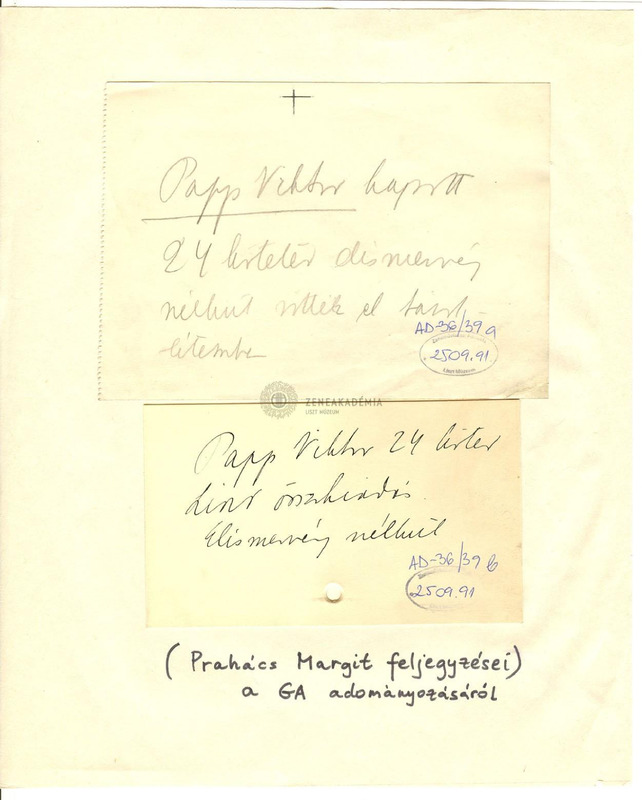 Papp Viktor kapott
24 kötetet elismervény
nélkül vitték el távol-
létemben
AD-36/39 a
2509.91
ZENEAKADÉMIA
LISZT MÚZEUM
Papp Viktor 24 kötet
Liszt összkiadás.
Elismervény nélkül
AD-36/39 b
2509.91
(Prahács Margit feljegyzései)
a GA adományozásáról